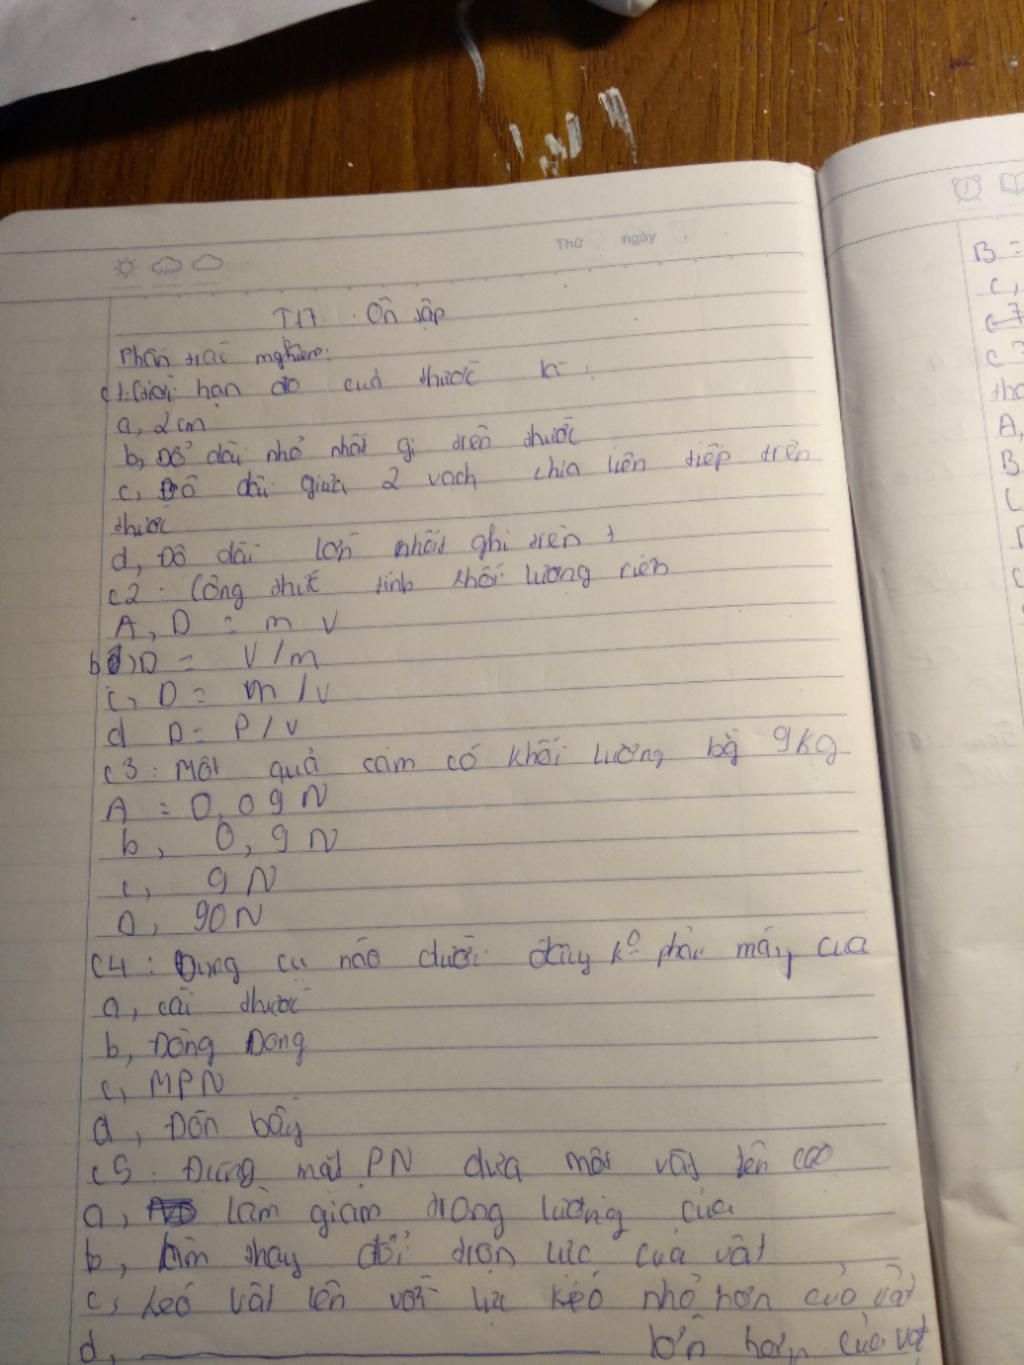 Thứ ngày
T17 : Ôn tập
Phần trắc nghiệm:
C1: Giới hạn đo của thước là :
a, 2cm
b, Độ dài nhỏ nhất gi trên thước
c, Độ dài giữa 2 vạch chia liên tiếp trên
thước
d, Độ dài lớn nhất ghi trên t
C2 : Công thức tính khối lượng riên
A, D = m V
b, D = V/m
c, D = m/v
d D = P/v
C3 : Một quả cam có khối lượng bằg 9KG
A = 0,09N
b, 0,9N
c, 9N
D, 90N
C4 : Dụng cụ nào dưới đây k° phải máy cua
a, cái thước
b, Dòng Dong
c, MPN
d, Đòn bẩy
C5 : Dùng mặt PN đưa một vật lên cao
a, làm giảm trọng lượng của
b, Làm thay đổi trọn lực của vật
c, keó vật lên với lực kéo nhỏ hơn của vật
d, lớn hơn của vật
B =
C,
C 7
C
tho
A,
B
C